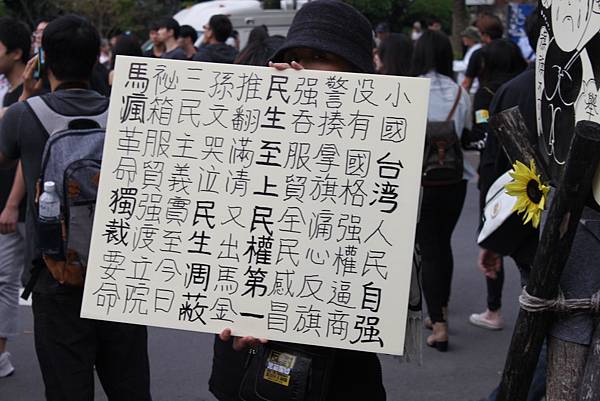 小國台湾人民自强
没有國格强權逼商
警揍拿旗痛心反旗
强吞服貿全民感昌
民生至上民權第一
推翻滿清又出馬金
孫文哭泣民生凋蔽
三民主義實至今日
祕箱服貿强渡立院
馬瘋革命獨裁要命